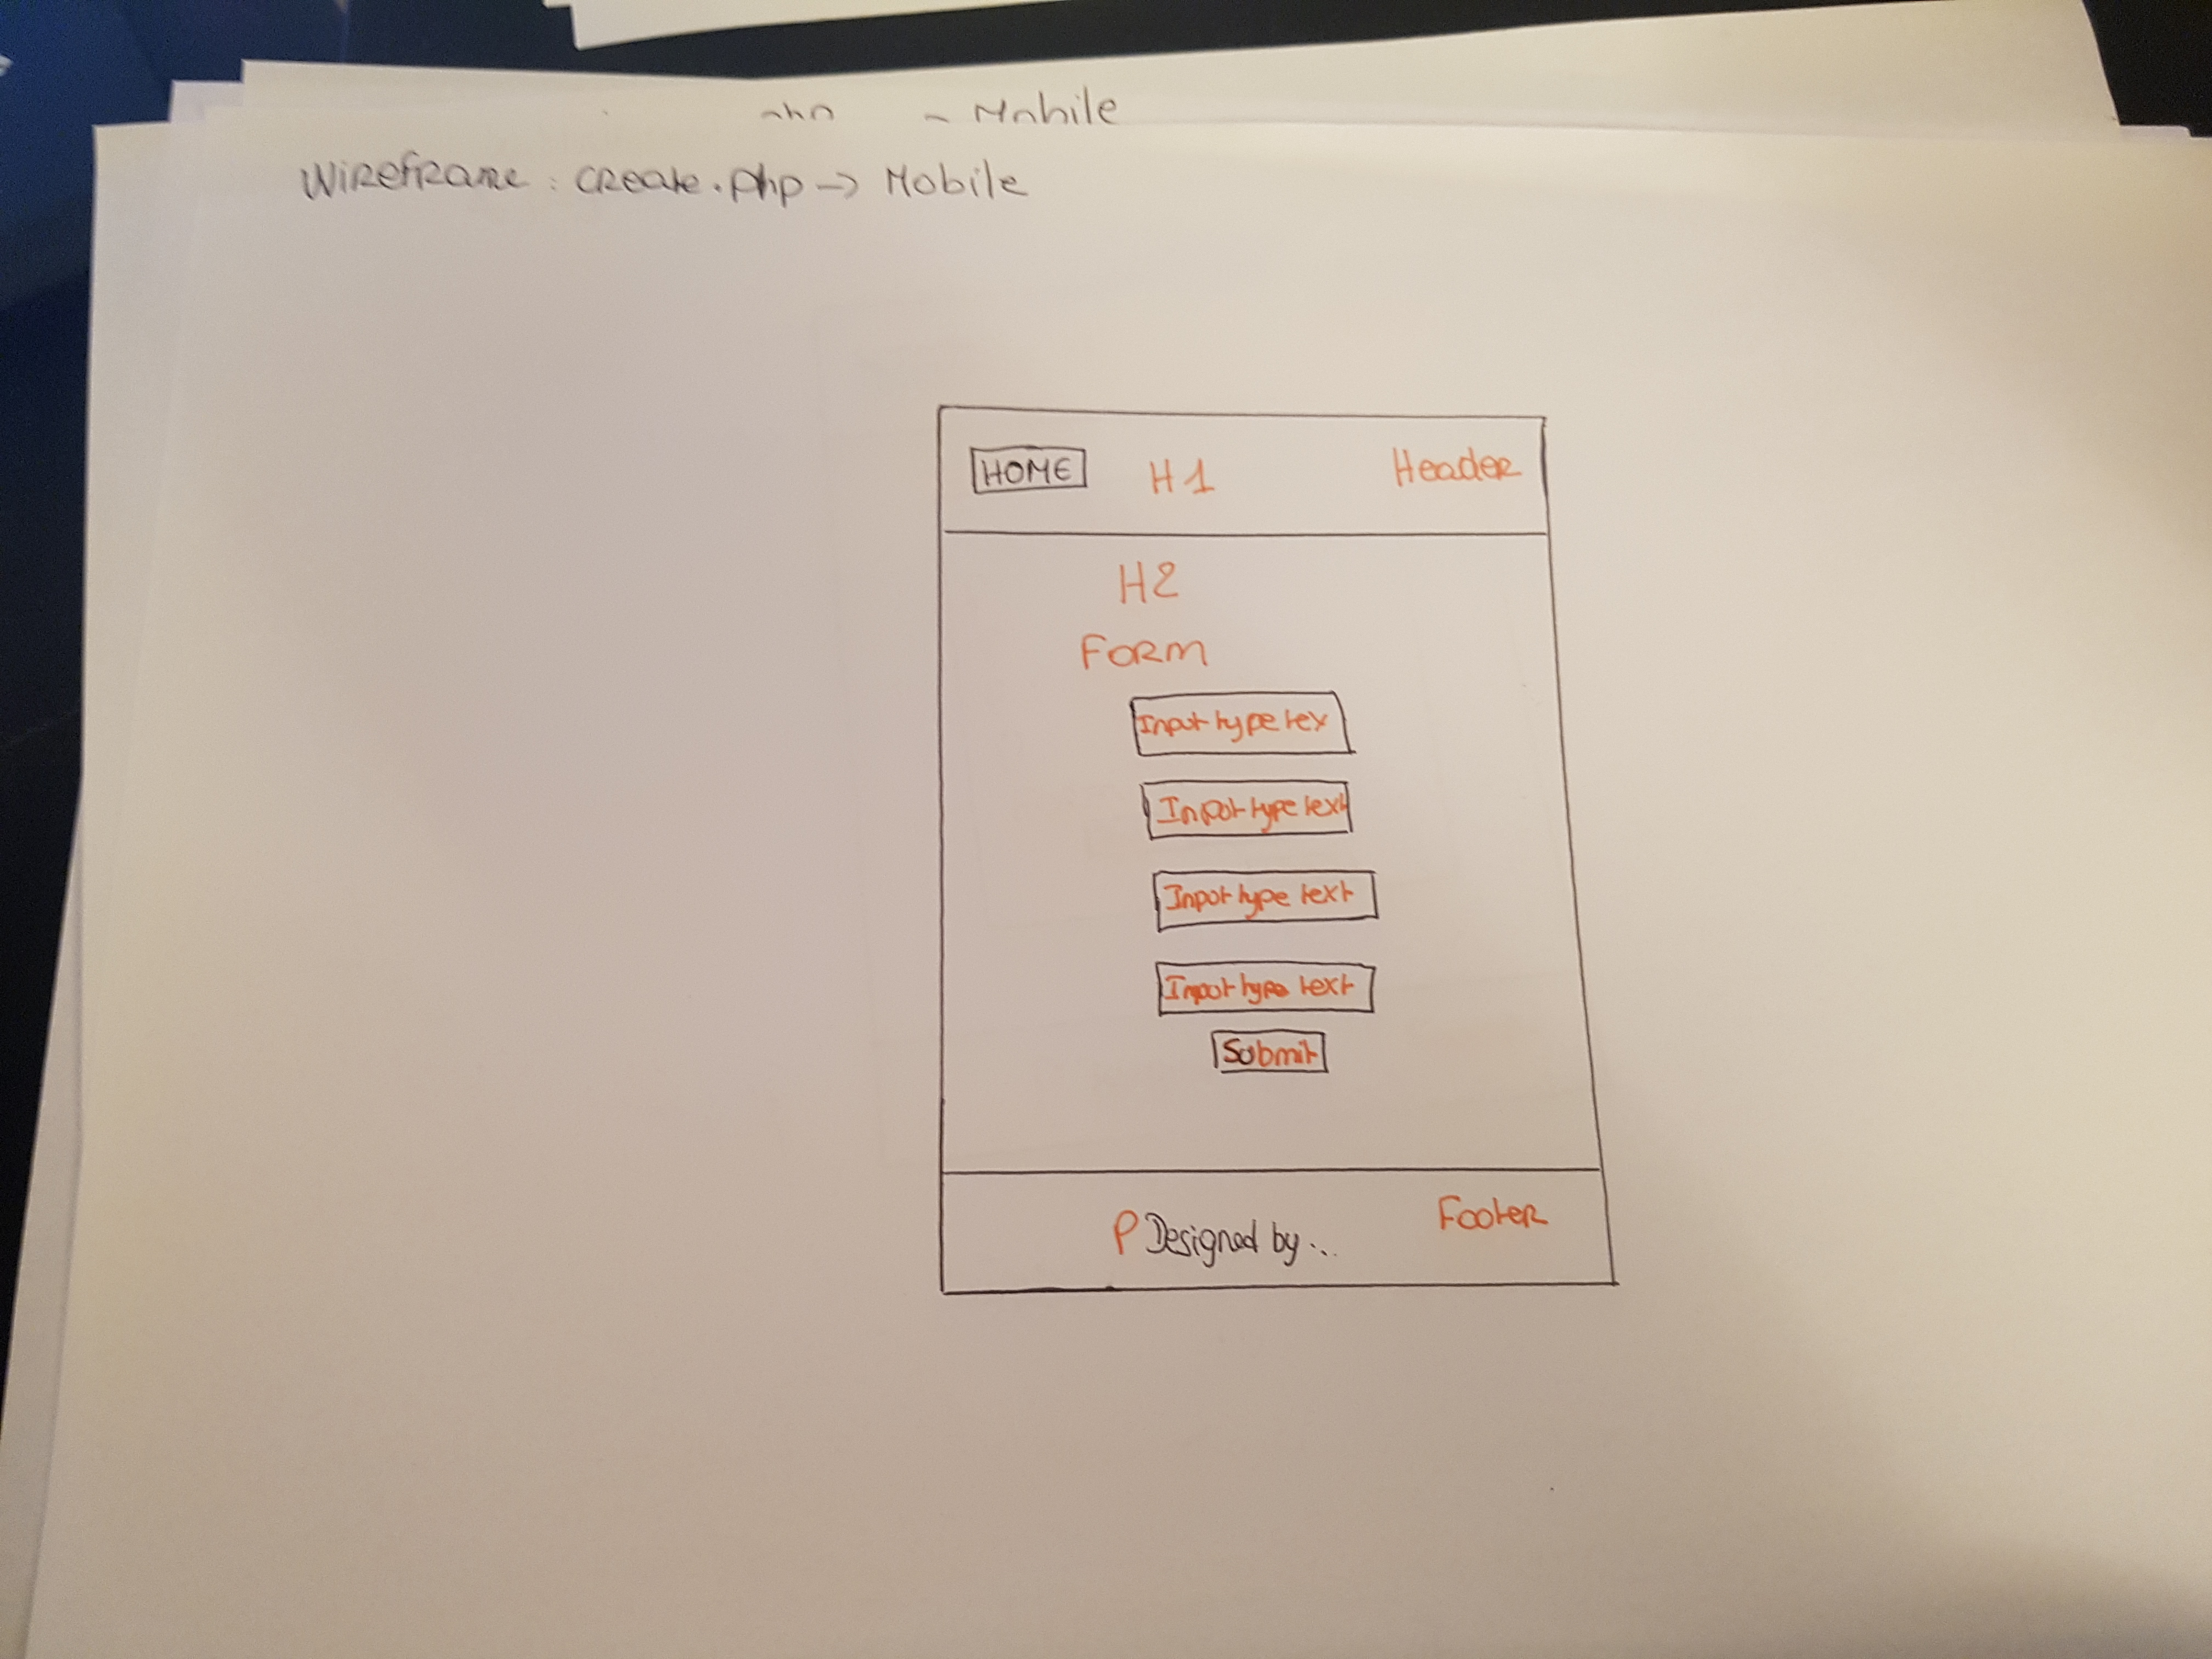 Mobile
Wireframe: create.php -> Mobile
HOME H1 Header
H2
Form
Input type tex
Input type text
Input type text
Input type text
Submit
P Designed by... Footer